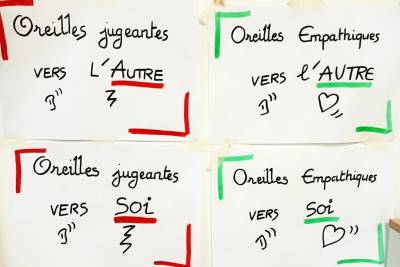 Oreilles jugeantes
VERS L'AUTRE
Oreilles Empathiques
VERS l'AUTRE
Oreilles jugeantes
VERS SOi
Oreilles Empathiques
VERS SOi